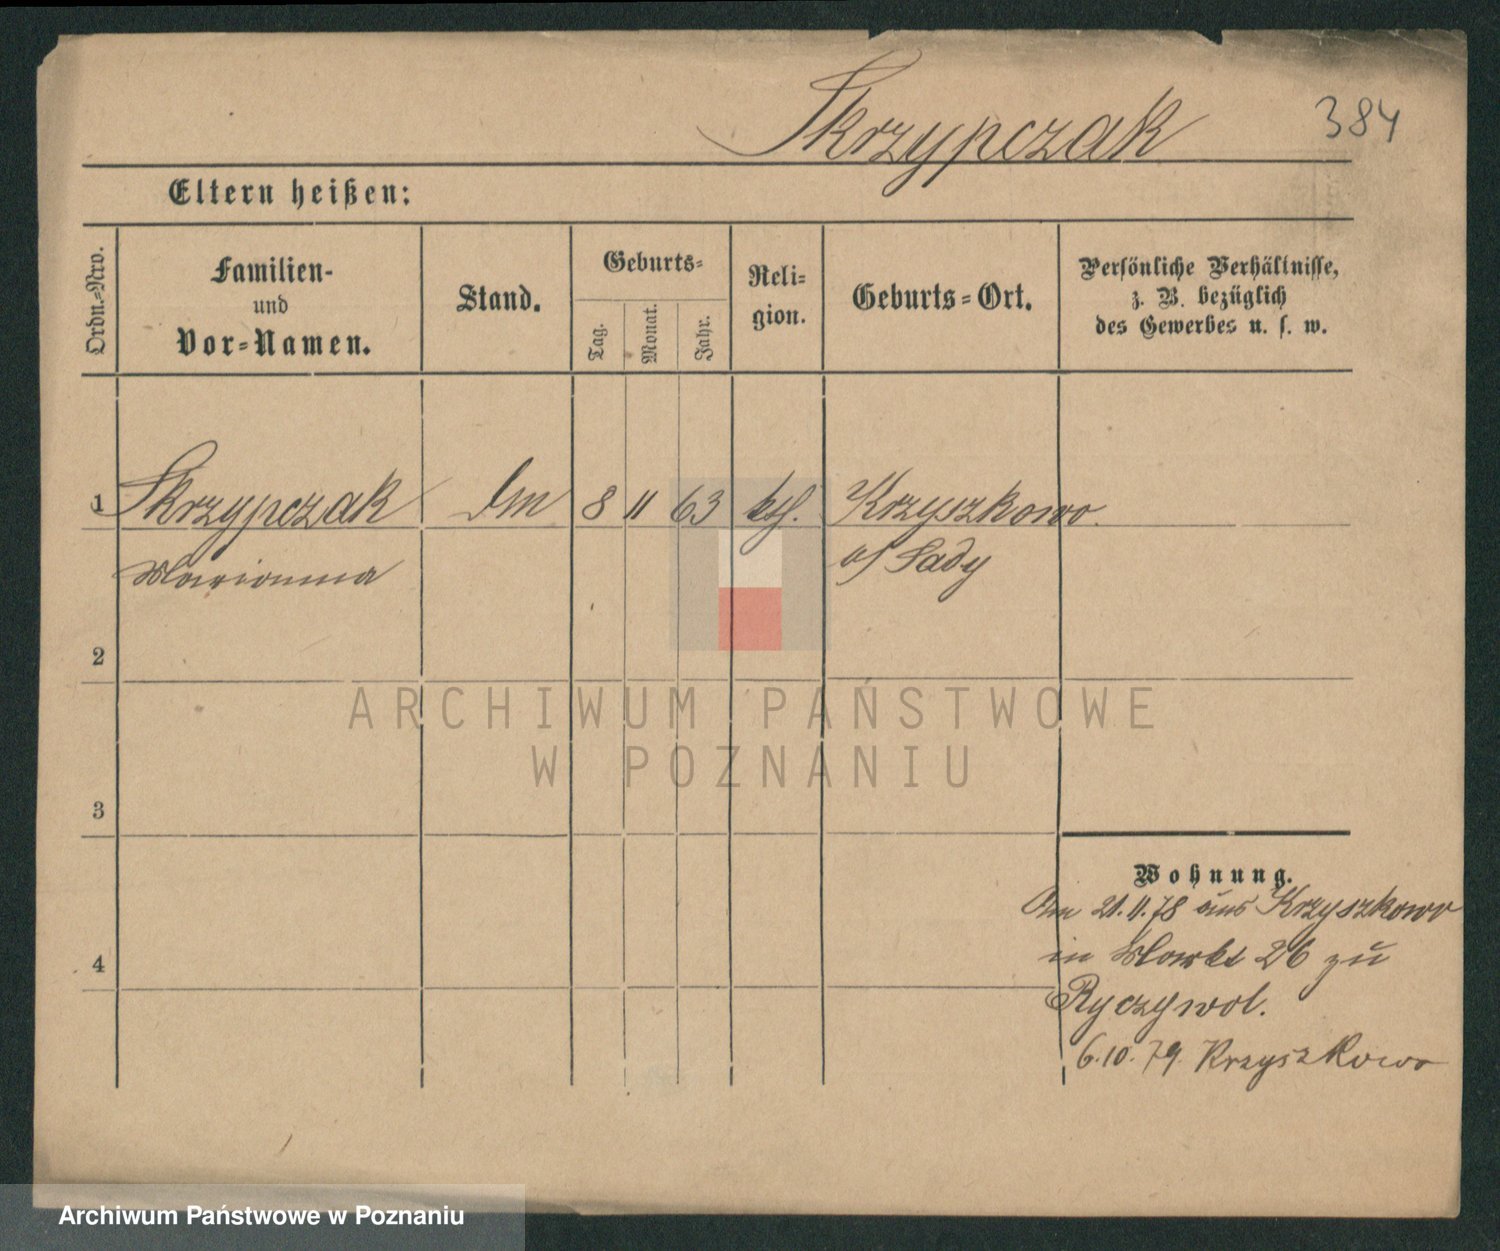 Skrzypczak
384
Eltern heißen:
Ordn.-Nro.
Familien-
und
Vor-Namen.
Stand.
Geburts-
Tag.
Monat.
Jahr.
Reli-
gion.
Geburts-Ort.
Persönliche Verhältnisse,
z. B. bezüglich
des Gewerbes u. s. w.
1 Skrzypczak 8 11 63 kth. Krzyszkowo
Marianna
Sady
2
3
4
ARCHIWUM PAŃSTWOWE
W POZNANIU
Wohnung.
Am 21.11.78 aus Krzyszkowo
in Markt 26 zu
Ryczywol.
6.10.79. Krzyszkowo
Archiwum Państwowe w Poznaniu